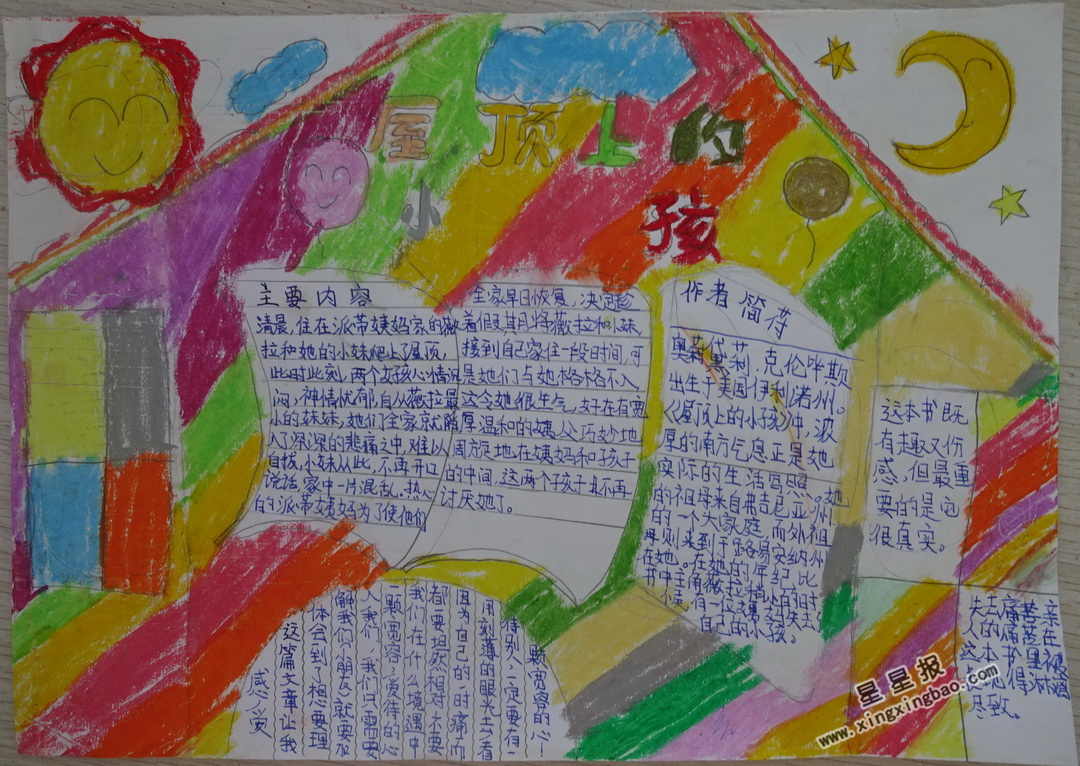 屋顶上的
小孩
主要内容
清晨,住在派蒂姨妈家的薇
拉和她的小妹爬上了屋顶,
此时此刻,两个女孩心情沉
闷,神情忧郁,自从薇拉最
小的妹妹,她们全家就陷
入了深深的悲痛之中,难以
自拔,小妹从此,不再开口
说话,家中一片混乱。热心
的派蒂姨妈为了使他们
全家早日恢复,决定趁
着假期将薇拉和小妹
接到自己家住一段时间,可
是她们与她格格不入
这令她很生气,好在有宽
厚温和的姨父巧妙地
周旋地在姨妈和孩子
的中间,这两个孩子也不再
讨厌她了。
作者简
奥莉黛莉.克伦毕斯
出生于美国伊利诺州。
《屋顶上的小孩》中,浓
厚的南方气息正是她
实际的生活写照。她
的祖母来自弗吉尼亚州
的一个大家庭而外祖
母则来到于路易安纳州
在她。在她的年纪比
书中主角薇拉稍小的时
候,有一位姨妈失去
自己的小孩。
这本书既
有趣又伤
感,但最重
要的是它
很真实。
失去痛苦亲
人的痛苦在
这本书里被
表现得淋漓
尽致。
感受
这篇文章让我
体会到了想要理
解我们的朋友就要加
入我们,我们只需要
一颗宽容、爱待的心
我们在什么境遇中
都要坦然相对不要
因为自己的一时痛而
用刻薄的眼光去看
待别人一定要有
一颗宽容的心!
星星报
www.xingxingbao.com